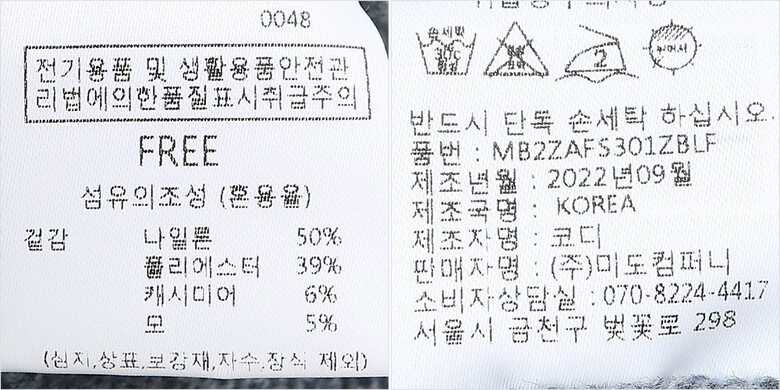 0048
전기용품 및 생활용품안전관
리법에의한품질표시취급주의
FREE
섬유의조성 (혼용율)
겉감 나일론 50%
폴리에스터 39%
캐시미어 6%
모 5%
(심지,상표,보강재,자수,장식 제외)
손세탁
30℃
중성
2
뉘어서
반드시 단독 손세탁 하십시오.
품번 : MB2ZAFS301ZBLF
제조년월 : 2022년09월
제조국명 : KOREA
제조자명 : 코디
판매자명 : (주)미도컴퍼니
소비자상담실 : 070-8224-4417
서울시 금천구 벚꽃로 298